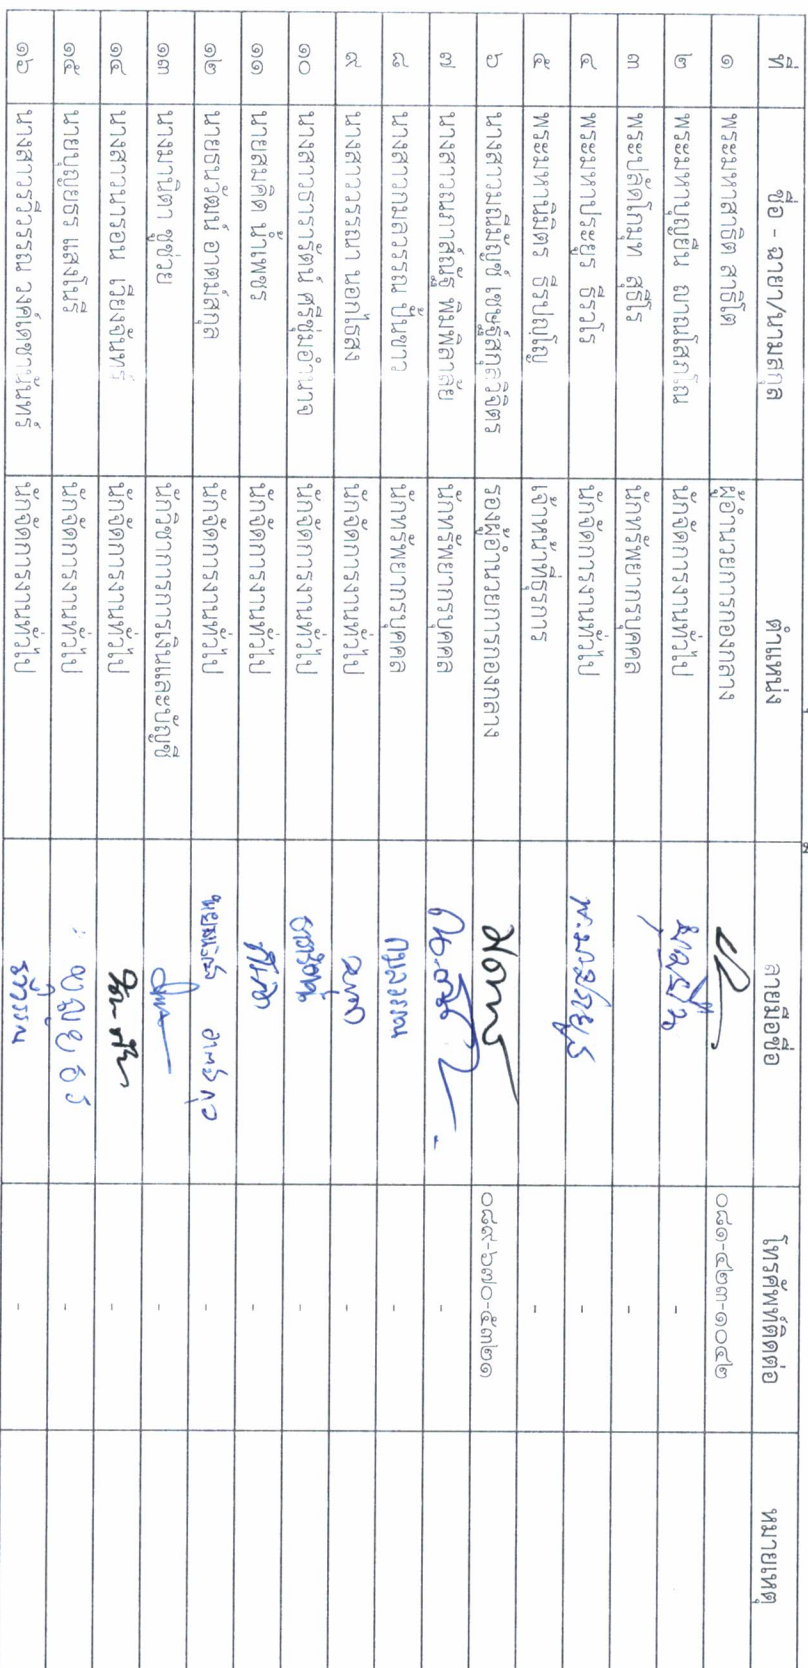 ที่ ชื่อ - ฉายา/นามสกุล ตำแหน่ง ลายมือชื่อ โทรศัพท์ติดต่อ หมายเหตุ
๑ พระมหาสาธิต สาธิโต ผู้อำนวยการกองกลาง ๐๘๑-๔๒๓-๑๐๔๒
๒ พระมหาบุญยืน ญาณโสภโณ นักจัดการงานทั่วไป -
๓ พระปลัดโกมุท สุธีโร นักทรัพยากรบุคคล -
๔ พระมหาประยูร ธีรวโร นักจัดการงานทั่วไป พ.มหาประยูร -
๕ พระมหานิมิตร ธีรปญฺโญ เจ้าหน้าที่ธุรการ -
๖ นางสาวมณีมัญช์ เชษฐ์สกุลวิจิตร รองผู้อำนวยการกองกลาง ๐๘๙-๖๗๐-๕๓๒๑
๗ นางสาวณภาส์ณัฐ พิมพิลาลัย นักทรัพยากรบุคคล -
๘ นางสาวกมลวรรณ ปั้นขาว นักทรัพยากรบุคคล กมลวรรณ -
๙ นางสาววรรณา นอกไธสง นักจัดการงานทั่วไป -
๑๐ นางสาวธารารัตน์ ศรีชุ่มอำนาจ นักจัดการงานทั่วไป -
๑๑ นายสมคิด น้ำเพชร นักจัดการงานทั่วไป -
๑๒ นายธนวัฒน์ อาตม์สกุล นักจัดการงานทั่วไป -
๑๓ นางมานิตา ชูช่วย นักวิชาการการเงินและบัญชี -
๑๔ นางสาวนารอน เวียงจันทร์ นักจัดการงานทั่วไป -
๑๕ นายบุญยธร แสงโนรี นักจัดการงานทั่วไป บุญยธร -
๑๖ นางสาวรวีวรรณ วงศ์เดชานันทร์ นักจัดการงานทั่วไป รวีวรรณ -